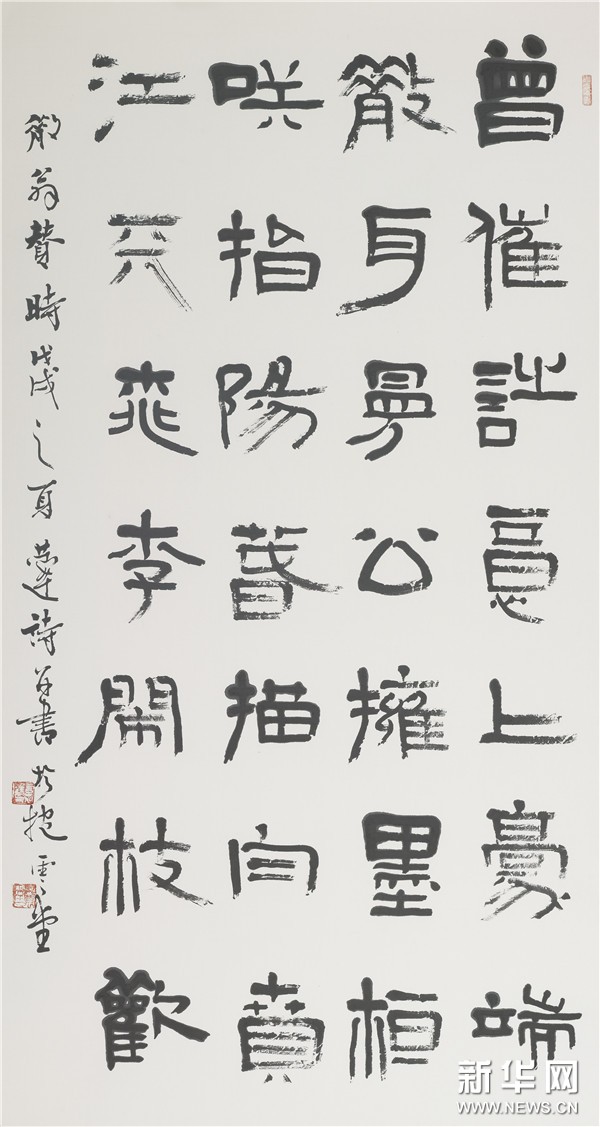 曾催詩意上豪端
散耳公擁墨桓
咲指陽春描向賁
江天桃李鬧枝歡
散翁贊時戊戌之夏恭達詩并書於抱雲堂
新华网
WWW.NEWS.CN